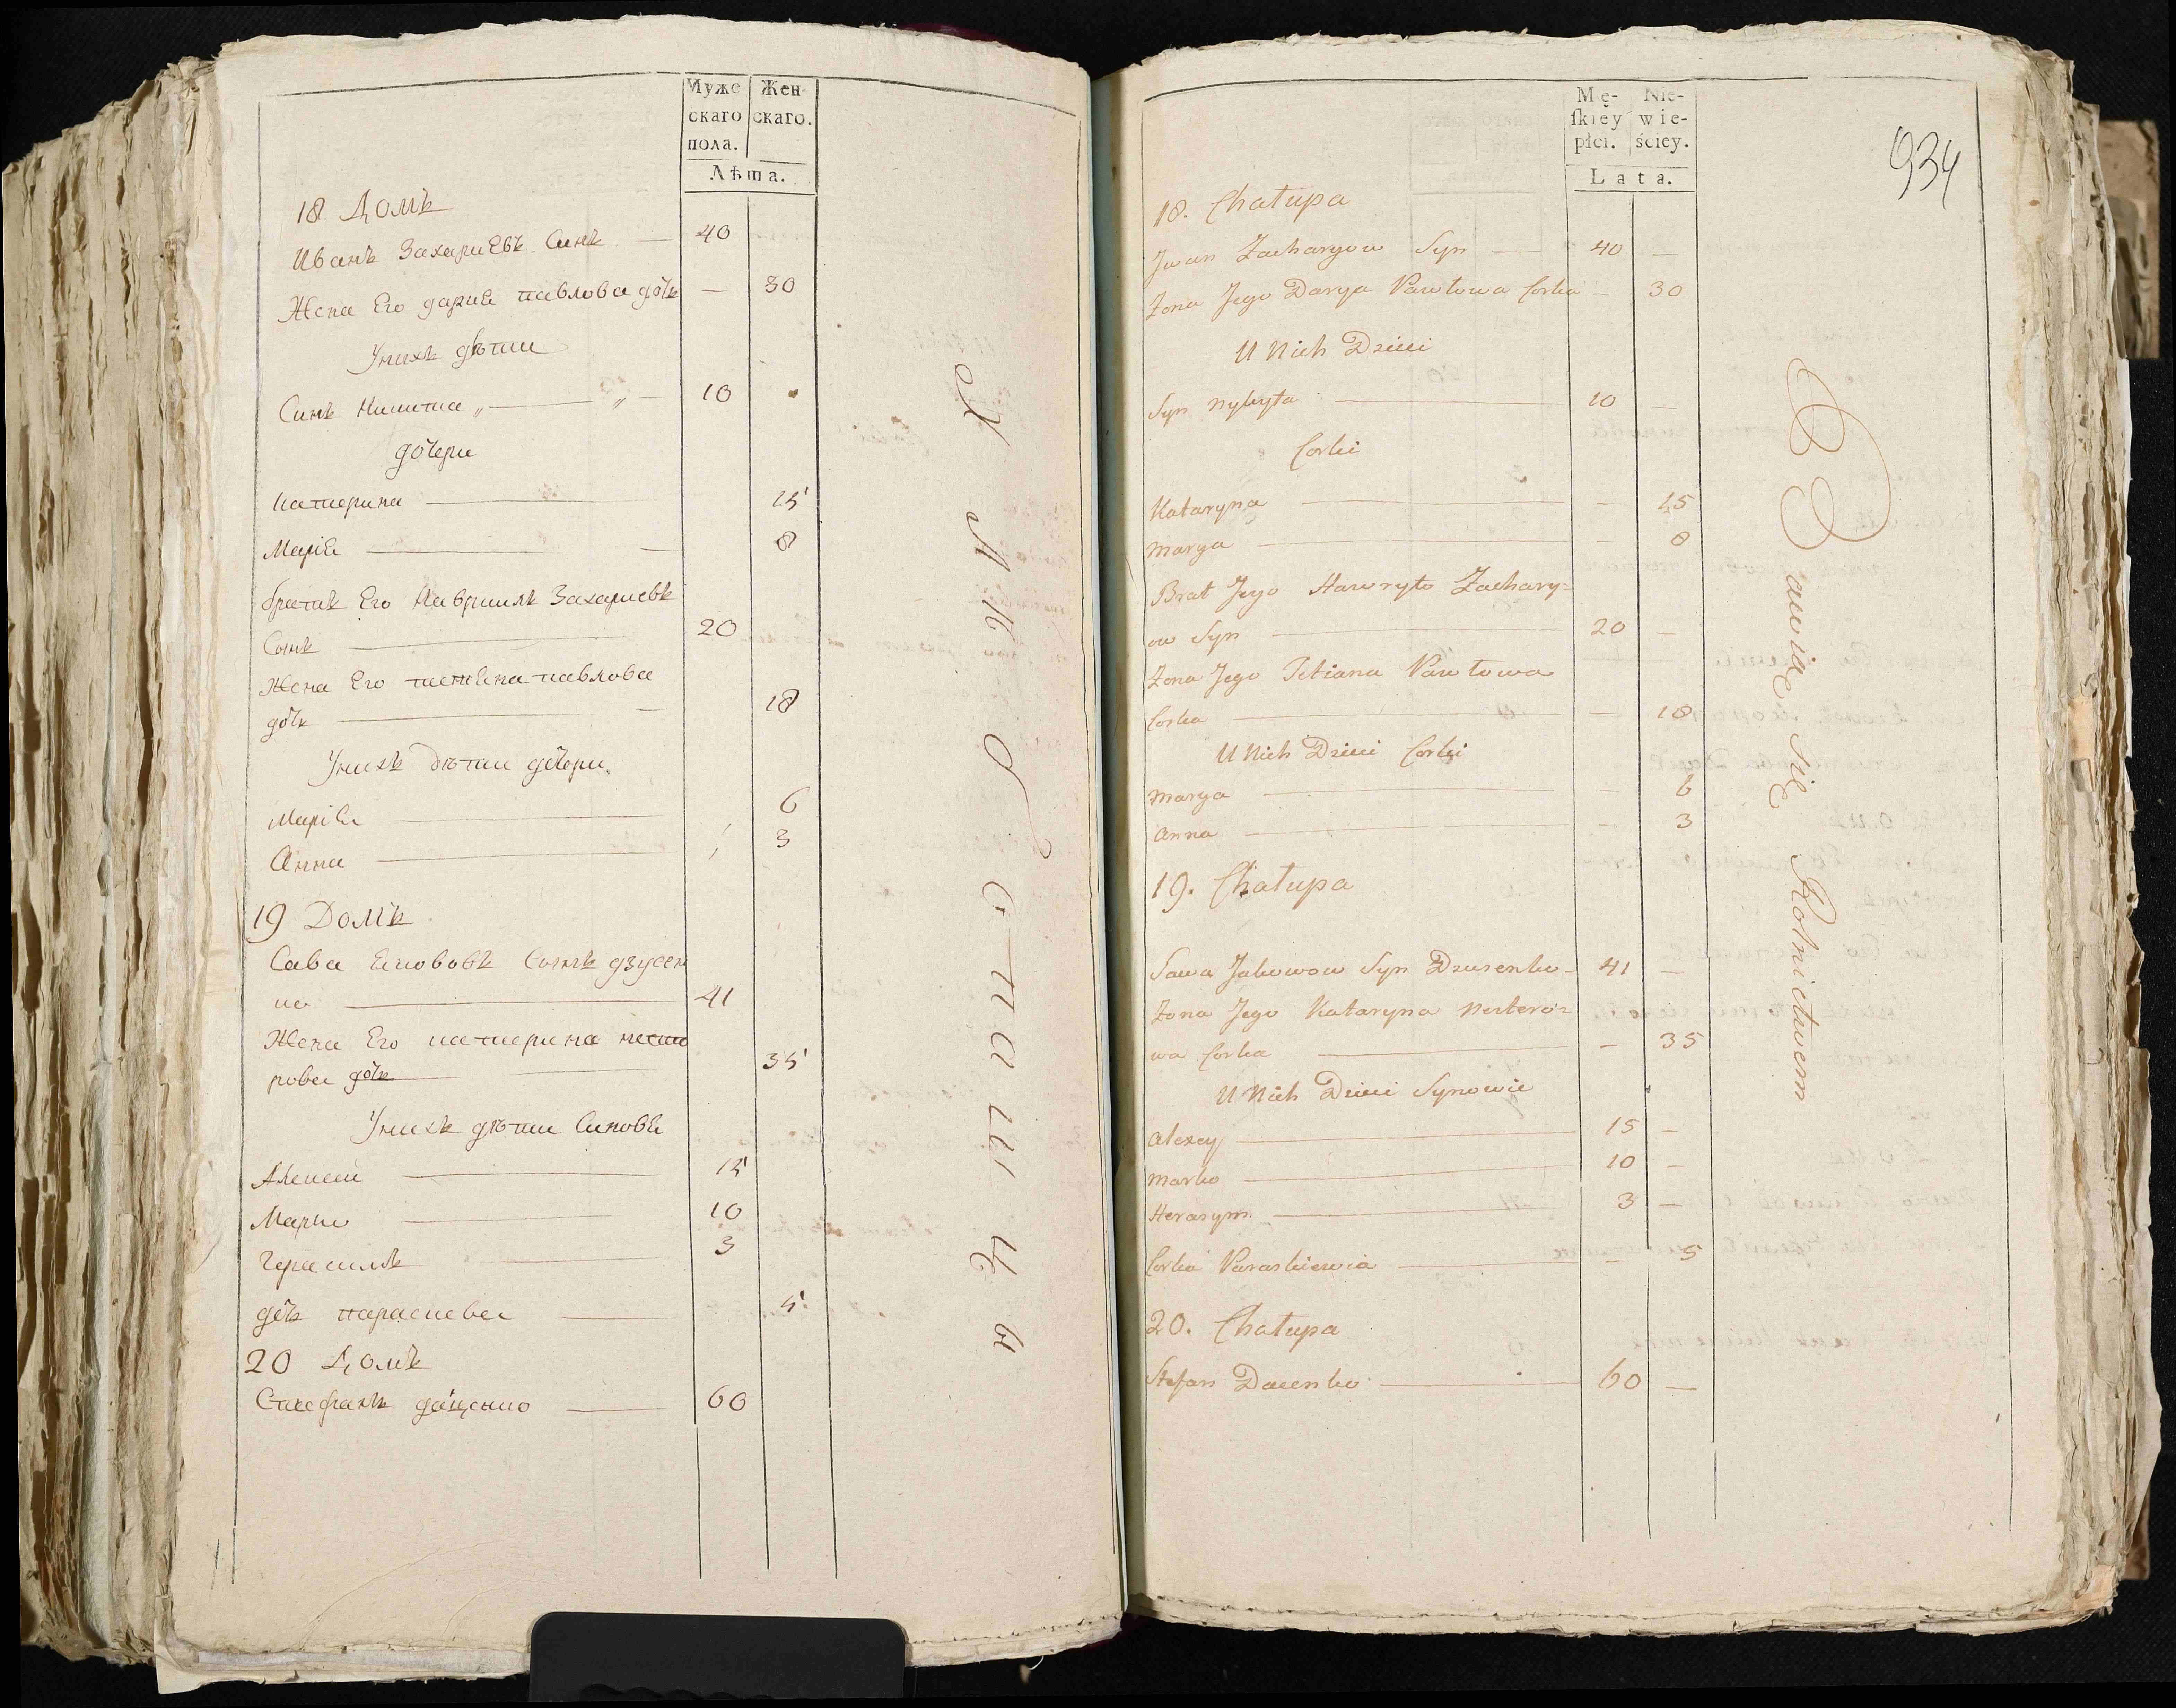 Муже Жен-
скаго скаго.
пола.
Лѣта.
18 Домъ
Иванъ Захариевъ Синъ — 40
Жена Его дария павлова дочь — 30
Унихъ дѣти
Синъ Никита „ — „ — 10
дочери
катерина — 15
Марія — 8
братъ Его Гавриилъ Захариевъ
Синъ — 20
Жена Его татиена павлова
дочь — 18
Унихъ дѣти дочери.
Марія — 6
Анна — 3
19 Домъ
Сава Якововъ Синъ дзусен
ко — 41
Жена Его катерина несте
рова дочь — 35
Унихъ дѣти Синовя
Алексей — 15
Марко — 10
Герасимъ — 3
дочь параскева — 5
20 Домъ
Стефанъ даценко — 60
Хлѣбопашцы
Mę- Nie-
ſkiey wie-
płci. ściey.
Lata.
934
18. Chałupa
Jwan Zacharyow Syn — 40 —
Żona Jego Darya Pawłowa Corka — 30
U Nich Dzieci
Syn Nykyta — 10 —
Corki
Kataryna — 15
Marya — 8
Brat Jego Hawryło Zachary=
ow Syn — 20 —
Żona Jego Tetiana Pawłowa
Corka — 18
U Nich Dzieci Corki
Marya — 6
Anna — 3
19. Chałupa
Sawa Jakowow Syn Dzusenko — 41 —
Żona Jego Kataryna Nestero=
wa Corka — 35
U Nich Dzieci Synowie
Alexey — 15 —
Marko — 10 —
Herasym. — 3 —
Corka Paraskiewia — 5
20. Chałupa
Stefan Dacenko — 60 —
Bawią się Rolnictwem